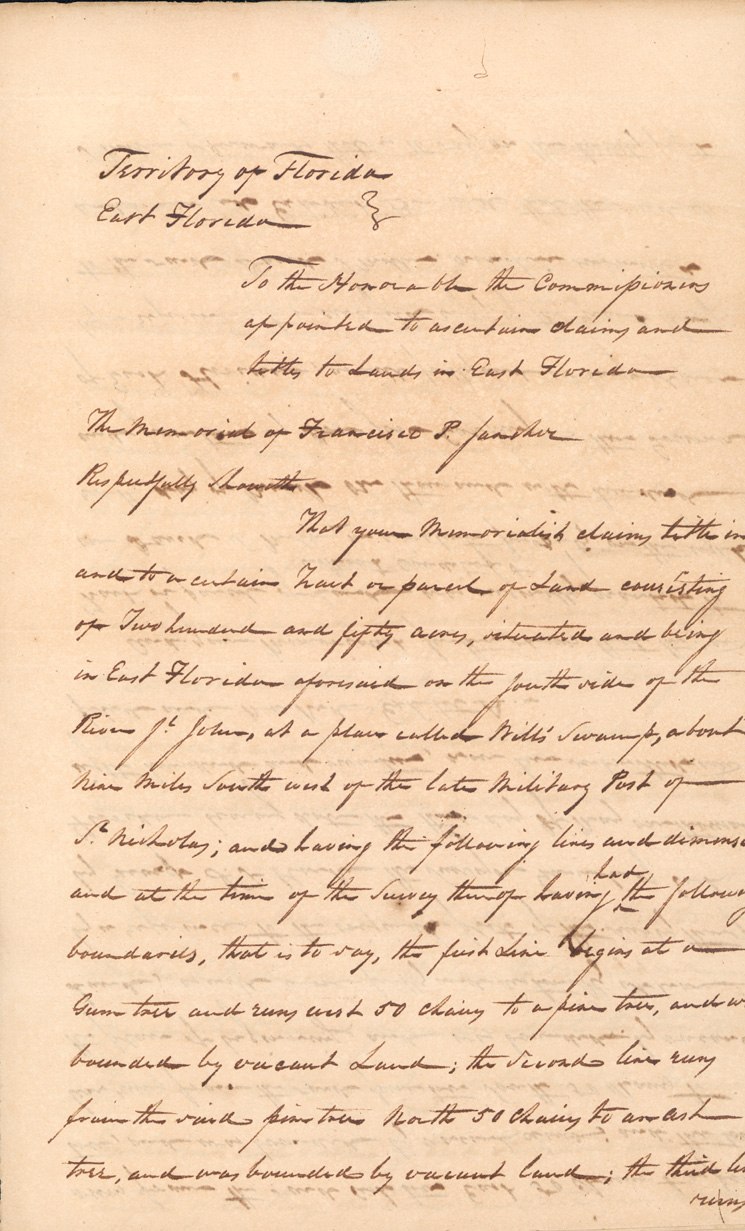 Territory of Florida
East Florida
To the Honorable the Commissioners
appointed to ascertain claims and
titles to Lands in East Florida
The Memorial of Francisco P. Sanchez
Respectfully Showeth
That your Memorialist claims title in
and to a certain tract or parcel of Land consisting
of Two hundred and fifty acres, situated and being
in East Florida aforesaid on the South side of the
River St. John, at a place called Will's Swamp, about
Nine Miles South west of the late Military Post of
St. Nicholas; and having the following lines and dimens
and at the time of the Survey thereof having had the follow
boundaries, that is to say, the first Line begins at a
Gum tree and runs west 50 chains to a pine tree, and w
bounded by vacant Land; the Second line runs
from the said pine tree North 50 Chains to an ash
tree, and was bounded by vacant land; the third li
runs